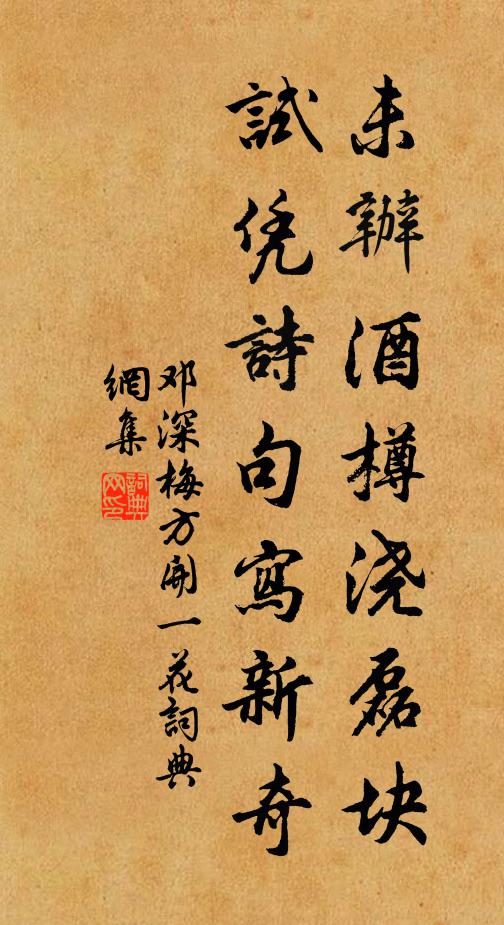 未辦酒樽浇磊块
試凭詩句寫新奇
邓深梅方開一花詞典
網集
詞典
网印